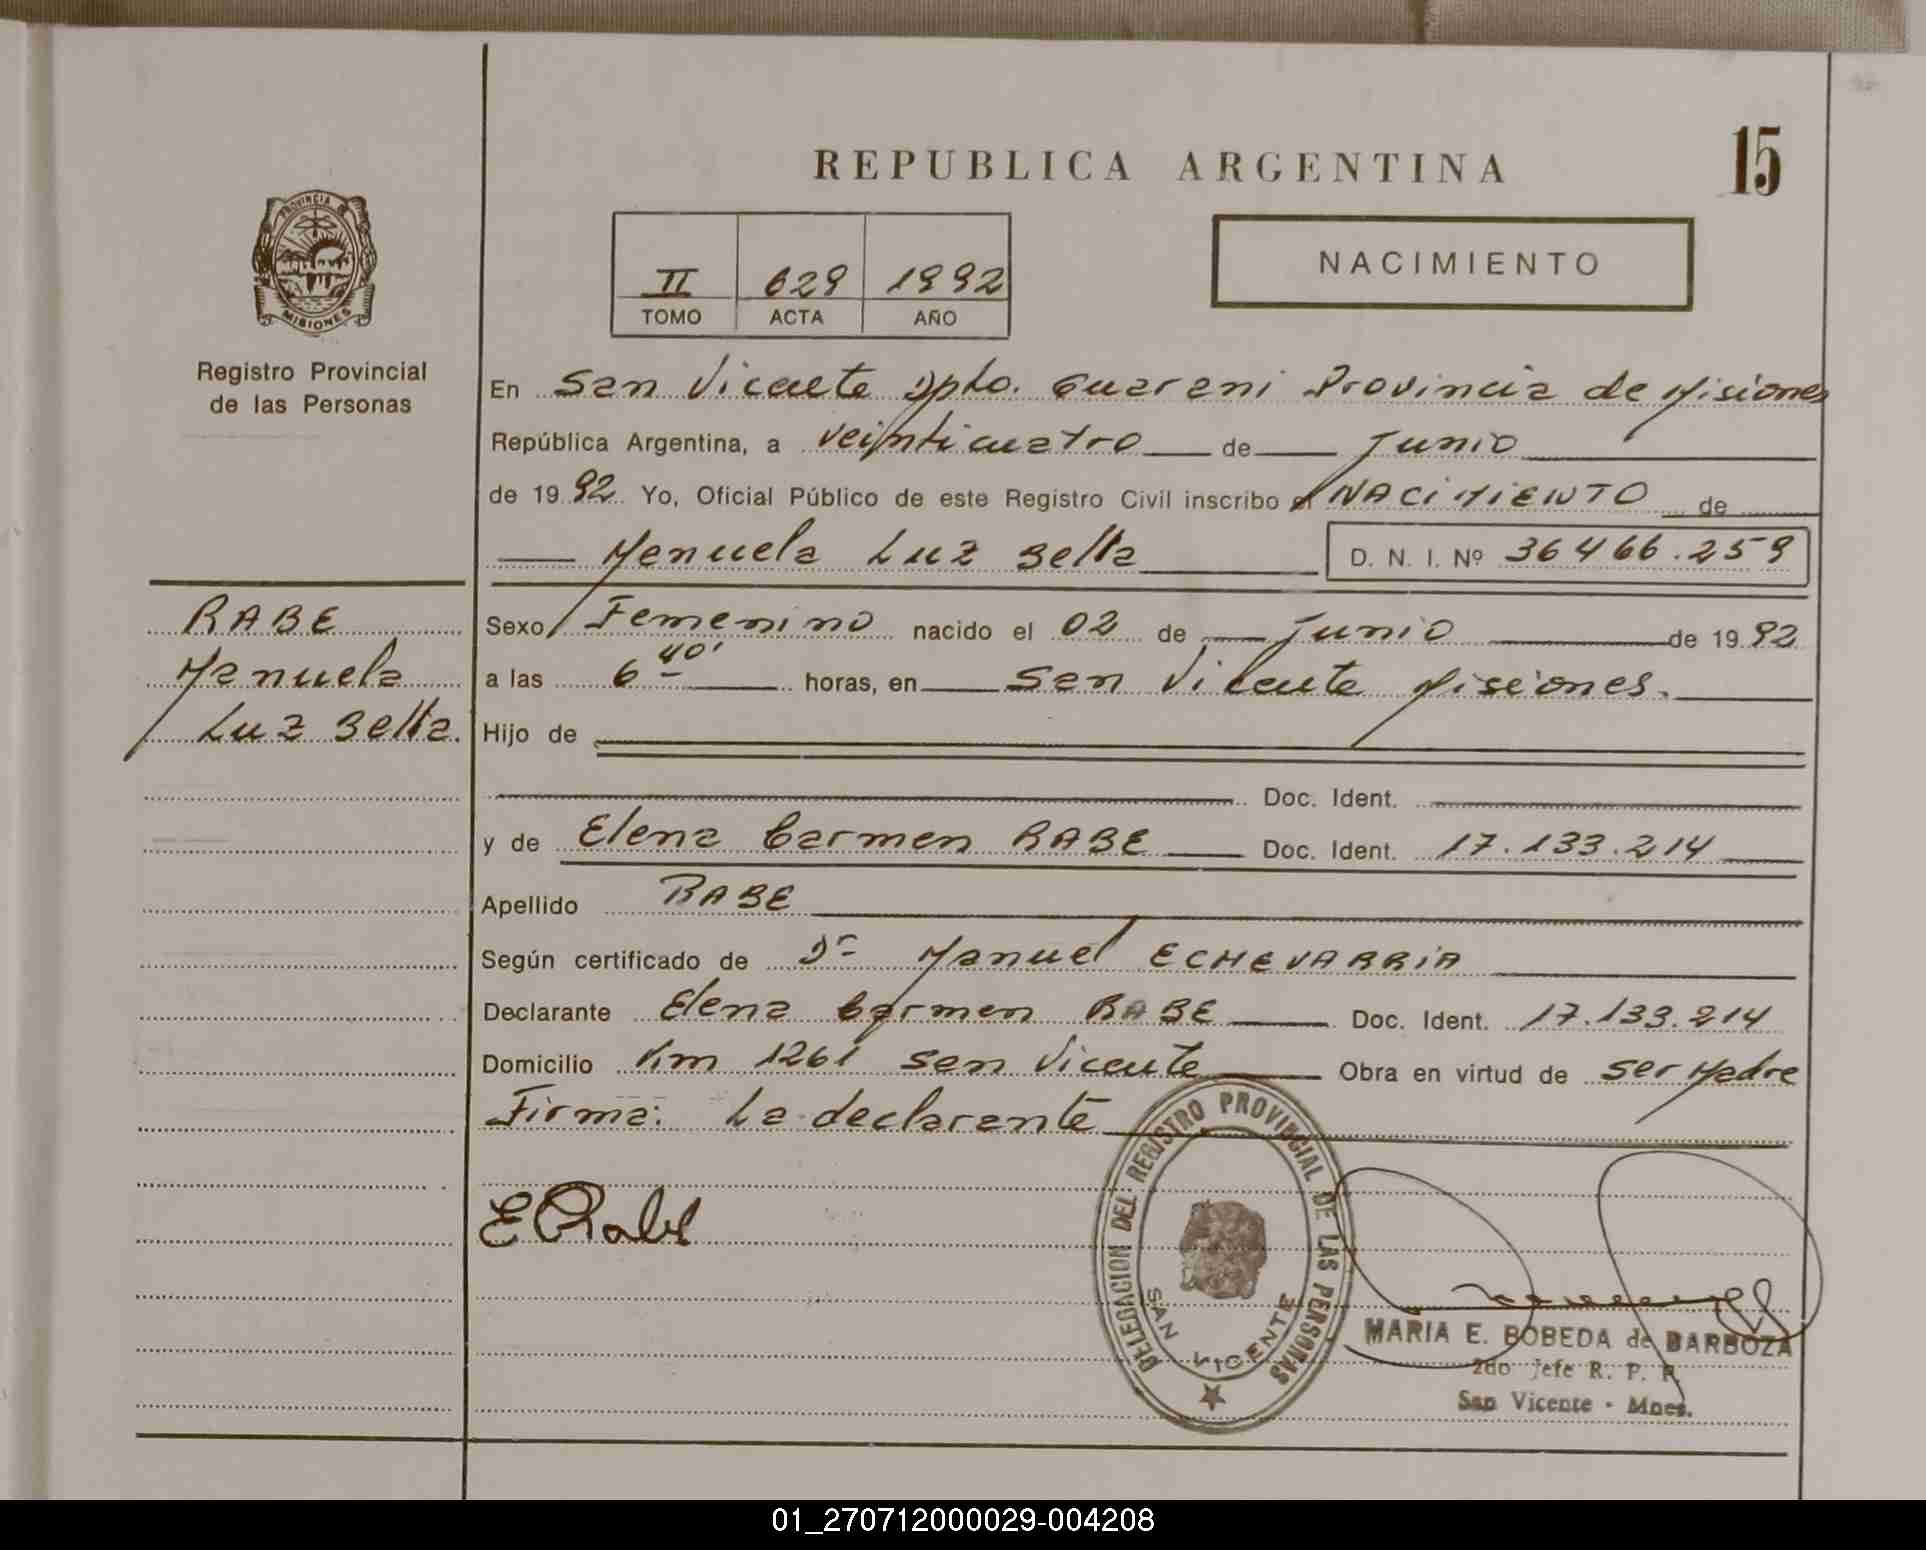 15
REPUBLICA ARGENTINA
NACIMIENTO
II 629 1992
TOMO ACTA AÑO
PROVINCIA DE
MISIONES
Registro Provincial
de las Personas
RABE
Manuela
Luz Bella.
En San Vicente Dpto. Guarani Provincia de Misiones
República Argentina, a veinticuatro de Junio
de 1992 Yo, Oficial Público de este Registro Civil inscribo el NACIMIENTO de
Manuela Luz Bella D. N. I. Nº 36466.259
Sexo Femenino nacido el 02 de Junio de 1992
a las 6 40' horas, en San Vicente Misiones.
Hijo de
Doc. Ident.
y de Elena Carmen RABE Doc. Ident. 17.133.214
Apellido RABE
Según certificado de Dr Manuel ECHEVARRIA
Declarante Elena Carmen RABE Doc. Ident. 17.133.214
Domicilio Km 1261 San Vicente Obra en virtud de ser Madre
Firma: La declarante
E Rabe
DELEGACION DEL REGISTRO PROVINCIAL DE LAS PERSONAS
SAN VICENTE
MARIA E. BOBEDA de BARBOZA
2do Jefe R. P. P.
San Vicente - Mnes.
01_270712000029-004208